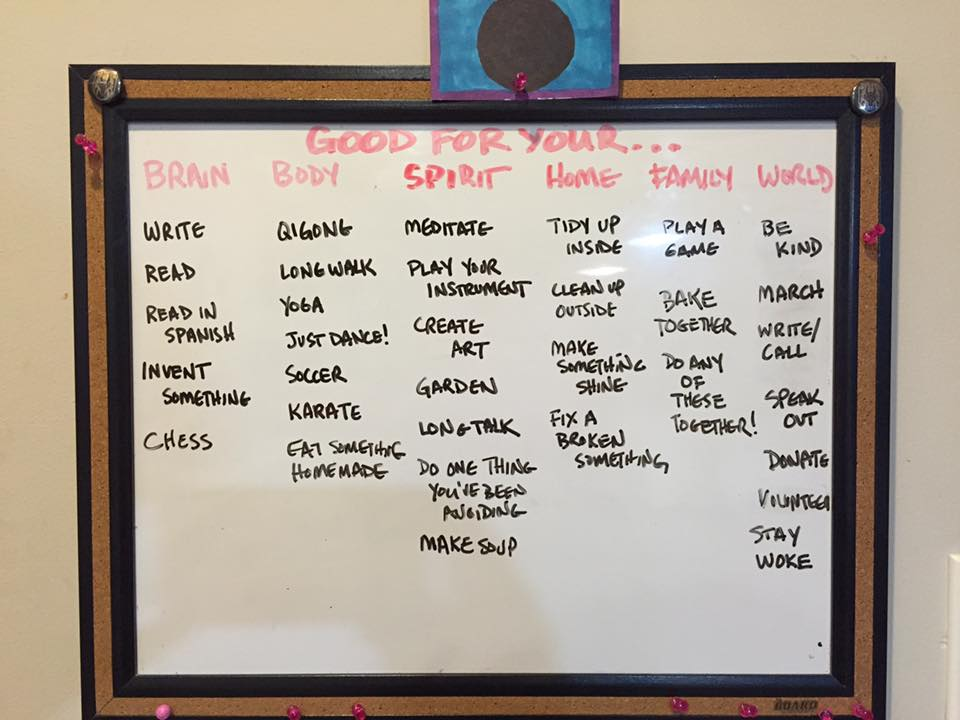 GOOD FOR YOUR...
BRAIN
WRITE
READ
READ IN
SPANISH
INVENT
SOMETHING
CHESS
BODY
QIGONG
LONG WALK
YOGA
JUST DANCE!
SOCCER
KARATE
EAT SOMETHING
HOMEMADE
SPIRIT
MEDITATE
PLAY YOUR
INSTRUMENT
CREATE
ART
GARDEN
LONG TALK
DO ONE THING
YOU'VE BEEN
AVOIDING
MAKE SOUP
HOME
TIDY UP
INSIDE
CLEAN UP
OUTSIDE
MAKE
SOMETHING
SHINE
FIX A
BROKEN
SOMETHING
FAMILY
PLAY A
GAME
BAKE
TOGETHER
DO ANY
OF
THESE
TOGETHER!
WORLD
BE
KIND
MARCH
WRITE/
CALL
SPEAK
OUT
DONATE
VOLUNTEER
STAY
WOKE
BOARD